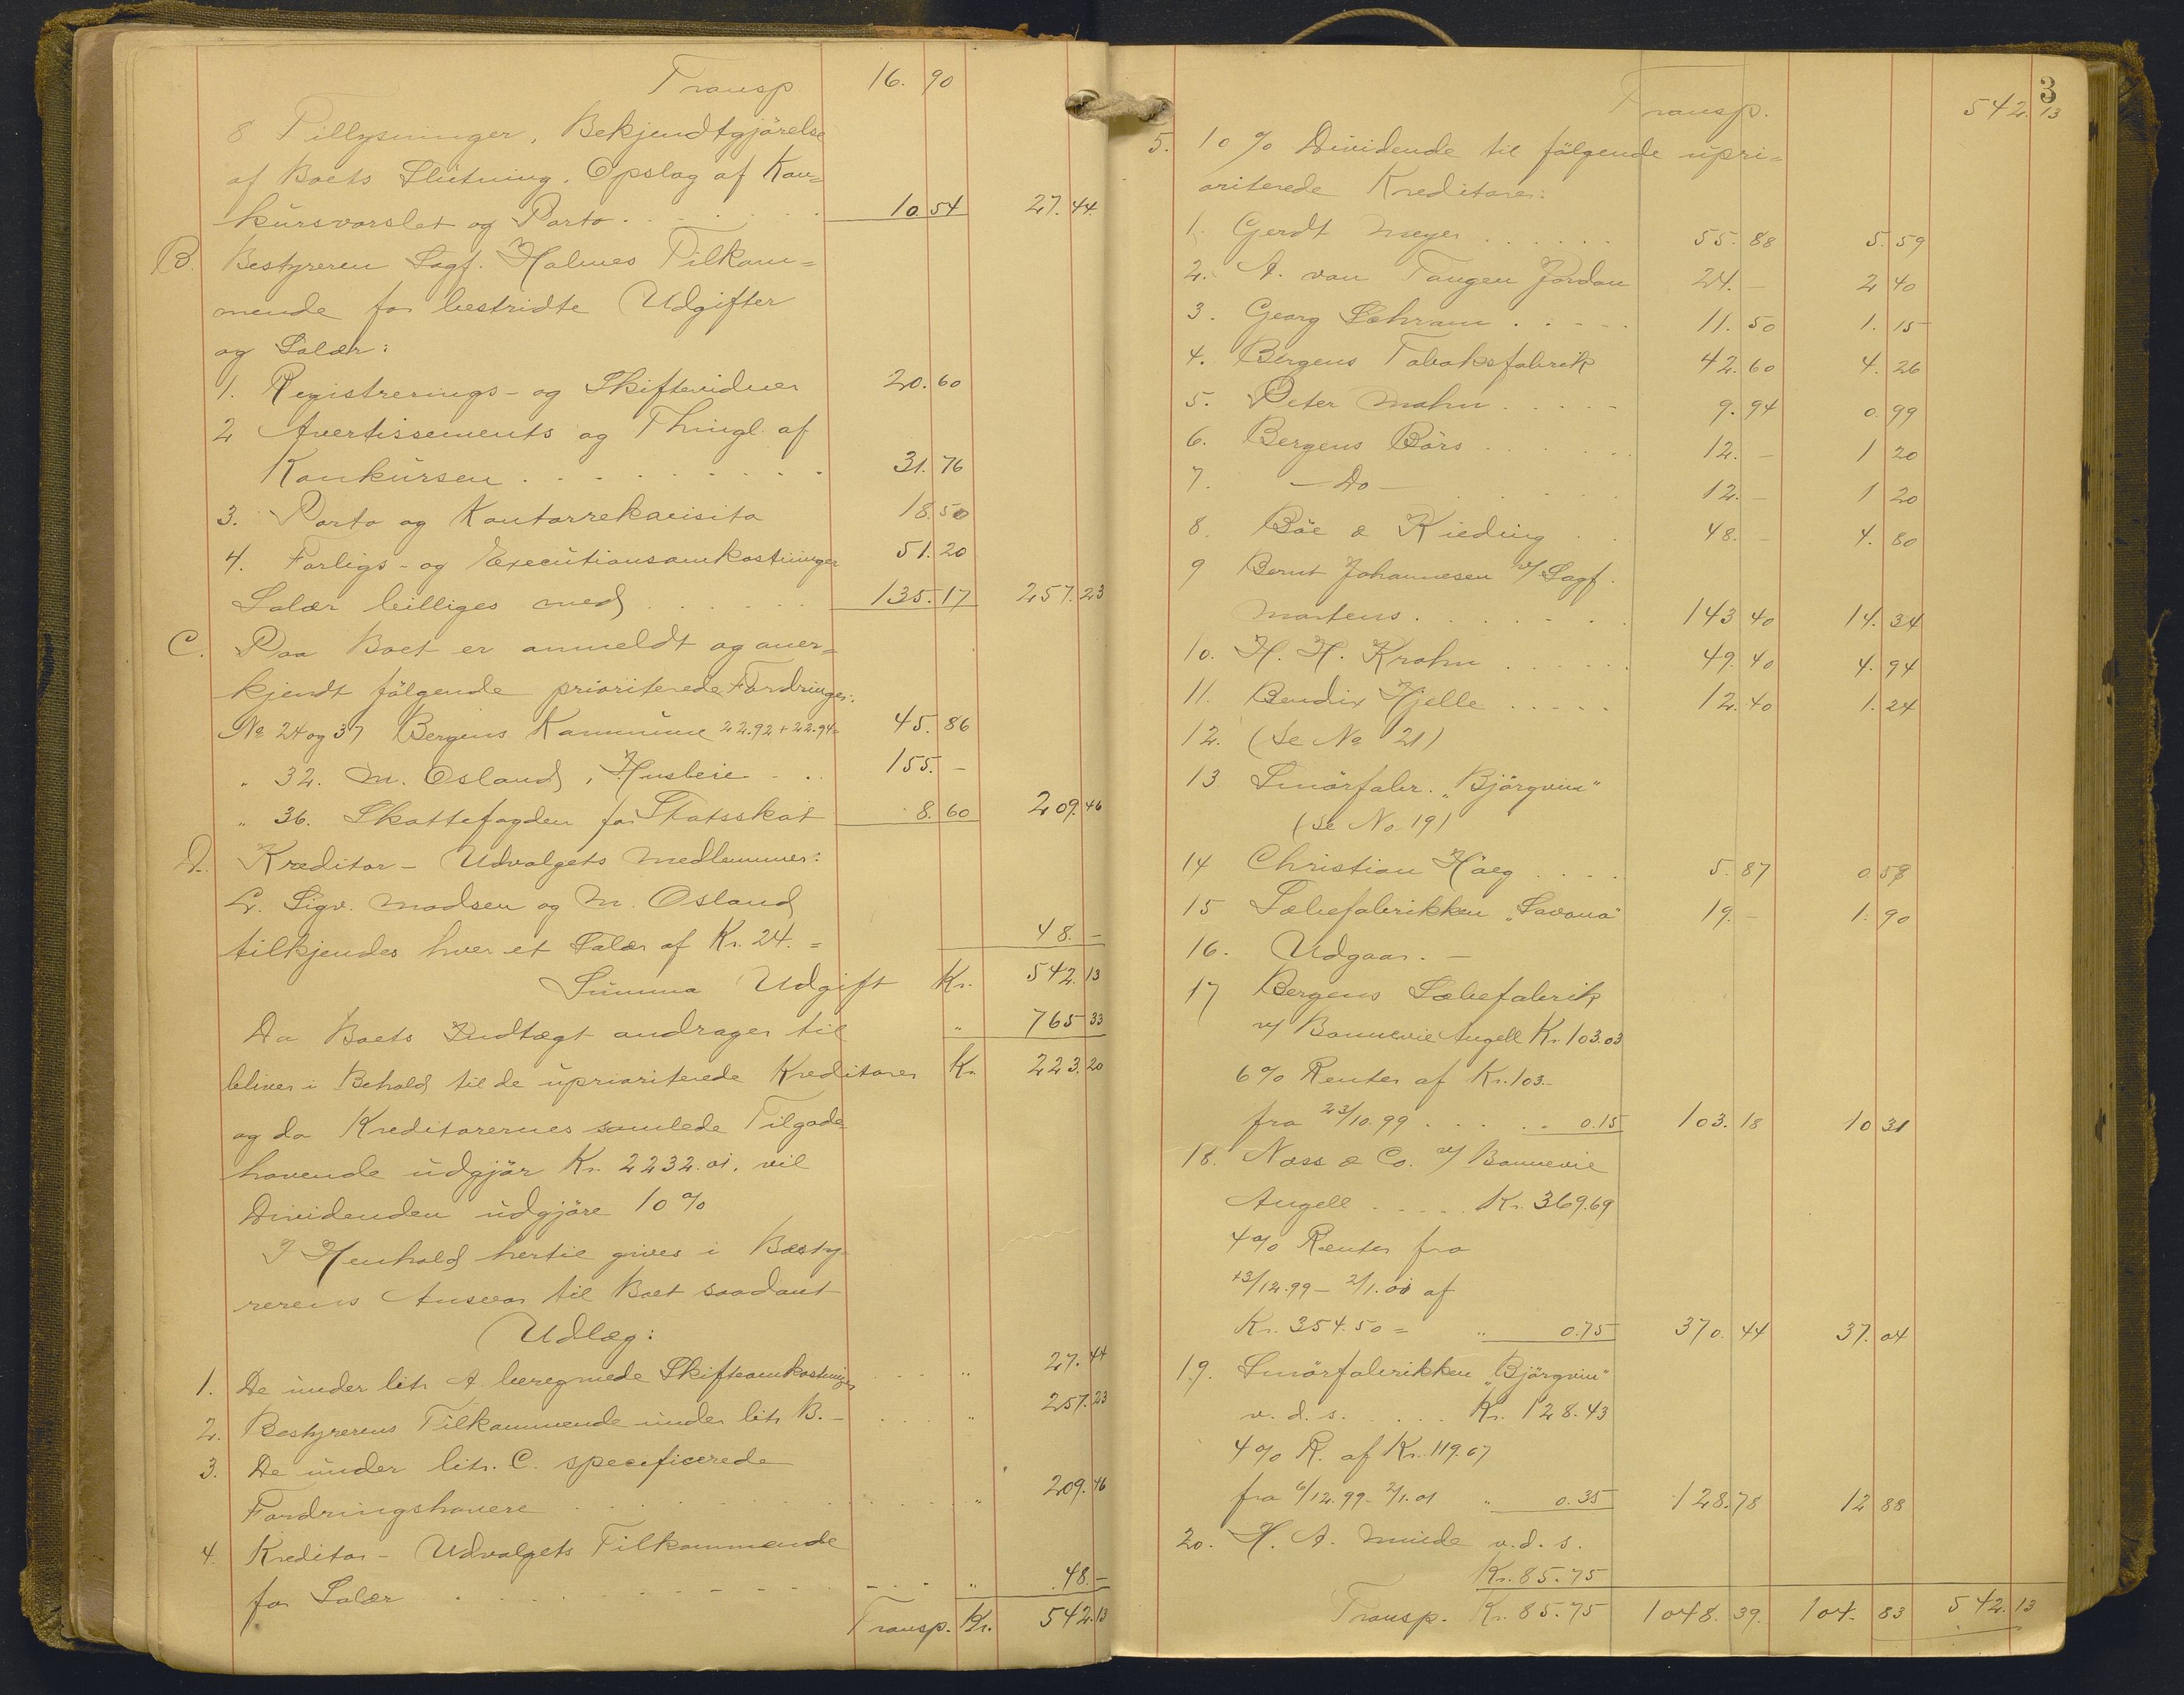 Transp 16. 90
8 Tillysninger, Bekjendtgjörelse
af Boets Slutning, Opslag af Kon=
kursvarslet og Porto . . . . . . 10.54 27.44.
B. Bestyreren Sagf. Holmes Tilkom=
mende for bestridte Udgifter
og Salær:
1. Registrerings- og Skiftevidner 20.60
2 Avertissements og Thingl. af
Konkursen . . . . . . . . . 31.76
3. Porto og Kontorrekvisita 18.50
4. Forligs- og Executionsomkostninger 51.20
Salær billiges med . . . . . . 135.17 257.23
C. Paa Boet er anmeldt og aner=
kjendt fölgende prioriterede Fordringer:
No 24 og 37 Bergens Kommune 22.92 + 22.94= 45.86
" 32. M. Osland, Husleie - . . 155.-
" 36. Skattefogden for Statsskat 8.60 209.46
D. Kreditor- Udvalgets Medlemmer:
L. Sigv. Madsen og M. Osland
tilkjendes hver et Salær af Kr. 24. = 48.-
Summa Udgift Kr. 542.13
Da Boets Indtægt andrager til " 765 33
bliver i Behold til de uprioriterede Kreditorer Kr. 223.20
og da Kreditorernes samlede Tilgode
havende udgjör Kr. 2232.01. vil
Dividenden udgjöre 10 %
I Henhold hertil gives i Besty
rerens Ansvar til Boet saadant
Udlæg:
1. De under litr A. beregnede Skifteomkostninger . . . " 27.44
2. Bestyrerens Tilkommende under litr B. - . . . " 257.23
3. De under litr. C. specificerede
Fordringshavere . . . . . . . . . . " 209.46
4. Kreditor- Udvalgets Tilkommende
for Salær . . . . . . . . . . " 48.-
Transp. Kr. 542.13
3
Transp. 542.13
5. 10 % Dividende til fölgende upri=
oriterede Kreditorer:
1. Gerdt Meyer . . . . . . 55.88 5.59
2. A. von Tangen Jordan 24.- 2 40
3. Georg Schram . . . . . 11.50 1.15
4. Bergens Tobaksfabrik 42.60 4.26
5. Peter Mohn . . . . . 9.94 0.99
6. Bergens Börs . . . . . . 12.- 1 20
7. - Do - . . . . . 12.- 1 20
8. Böe & Kieding . . 48.- 4.80
9 Bernt Johannesen v/ Sagf.
Martens . . . . . . . . 143 40 14.34
10. H. H. Krohn . . . . . . 49.40 4.94
11. Bendix Hjelle . . . . . 12.40 1.24
12. (Se No 21)
13 Smörfabr. "Björgvin"
(Se No. 19)
14 Christian Höeg . . . . 5.87 0.58
15 Sæbefabrikken "Savona" 19.- 1.90
16. Udgaar. -
17 Bergens Sæbefabrik
v/ Bonnevie Angell Kr. 103.03
6 % Renter af Kr. 103.-
fra 23/10.99 . . . . . . 0.15 103.18 10 31
18. Næss & Co. v/ Bonnevie
Angell . . . . . Kr. 369.69
4 % Renter fra
13/12.99 - 2/1.01 af
Kr. 354.50 = " 0.75 370.44 37.04
19. Smörfabrikken "Björgvin"
v. d. s. . . . . Kr. 128.43
4 % R. af Kr. 119.67
fra 6/12.99 - 2/1.01 " 0.35 128.78 12 88
20. H. A. Minde v. d. s.
Kr. 85.75
Transp. Kr. 85.75 1048.39. 104.83 542.13